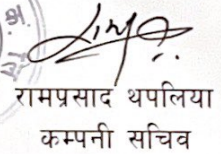 रामप्रसाद थपलिया
कम्पनी सचिव